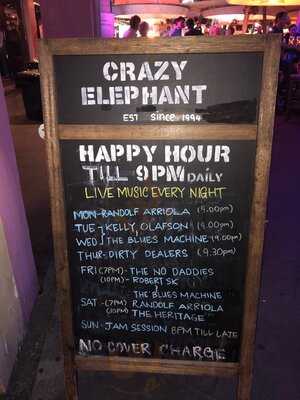 CRAZY
ELEPHANT
EST since 1994
HAPPY HOUR
TILL 9PM DAILY
LIVE MUSIC EVERY NIGHT
MON-RANDOLF ARRIOLA (9.00pm)
TUE-KELLY, OLAFSON (9.00pm)
WED THE BLUES MACHINE (9.00pm)
THUR-DIRTY DEALERS (9.30pm)
FRI (7PM)- THE NO DADDIES
(10PM)- ROBERT SK
THE BLUES MACHINE
SAT -(7PM) RANDOLF ARRIOLA
(10PM) THE HERITAGE
SUN-JAM SESSION 8PM TILL LATE
NO COVER CHARGE